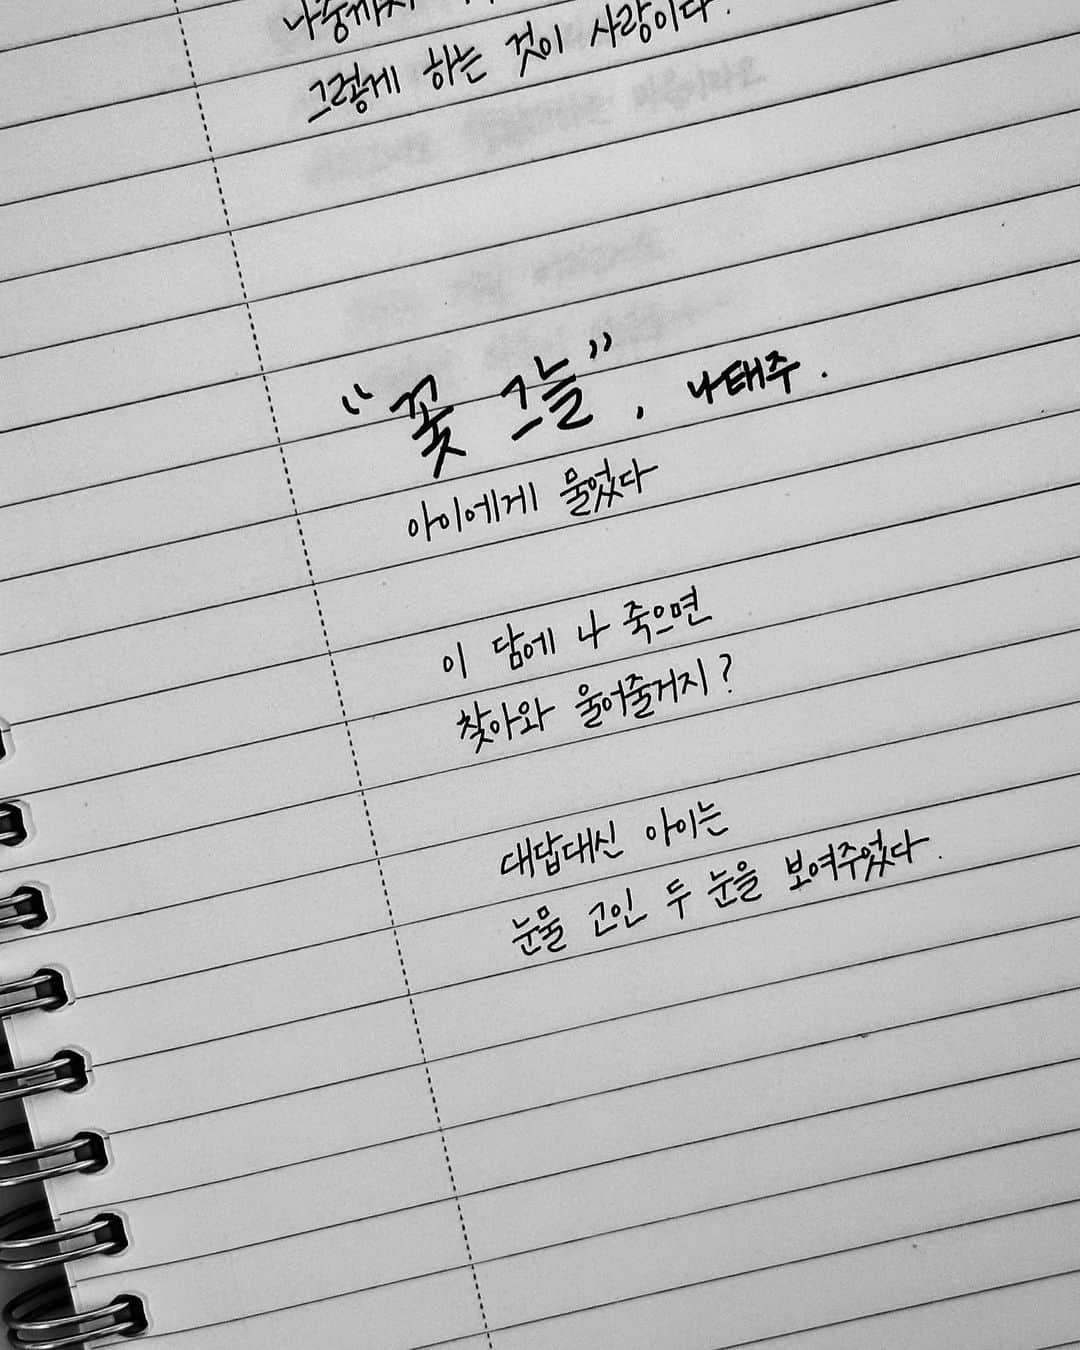 나중까지
그렇게 하는 것이 사랑이다.
“꽃 그늘”, 나태주.
아이에게 물었다
이 담에 나 죽으면
찾아와 울어줄거지?
대답대신 아이는
눈물 고인 두 눈을 보여주었다.